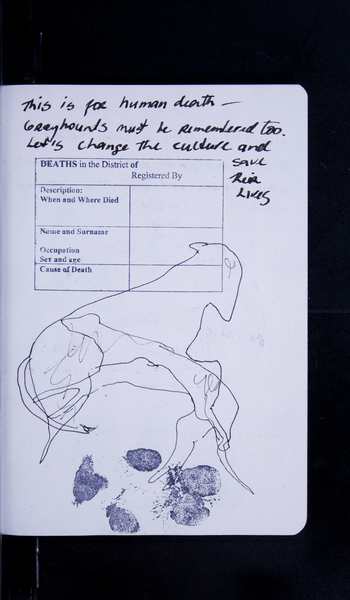 This is for human death –
Greyhounds must be remembered too.
Let's change the culture and
save
their
Lives
DEATHS in the District of
Registered By
Description:
When and Where Died
Name and Surname
Occupation
Sex and age
Cause of Death